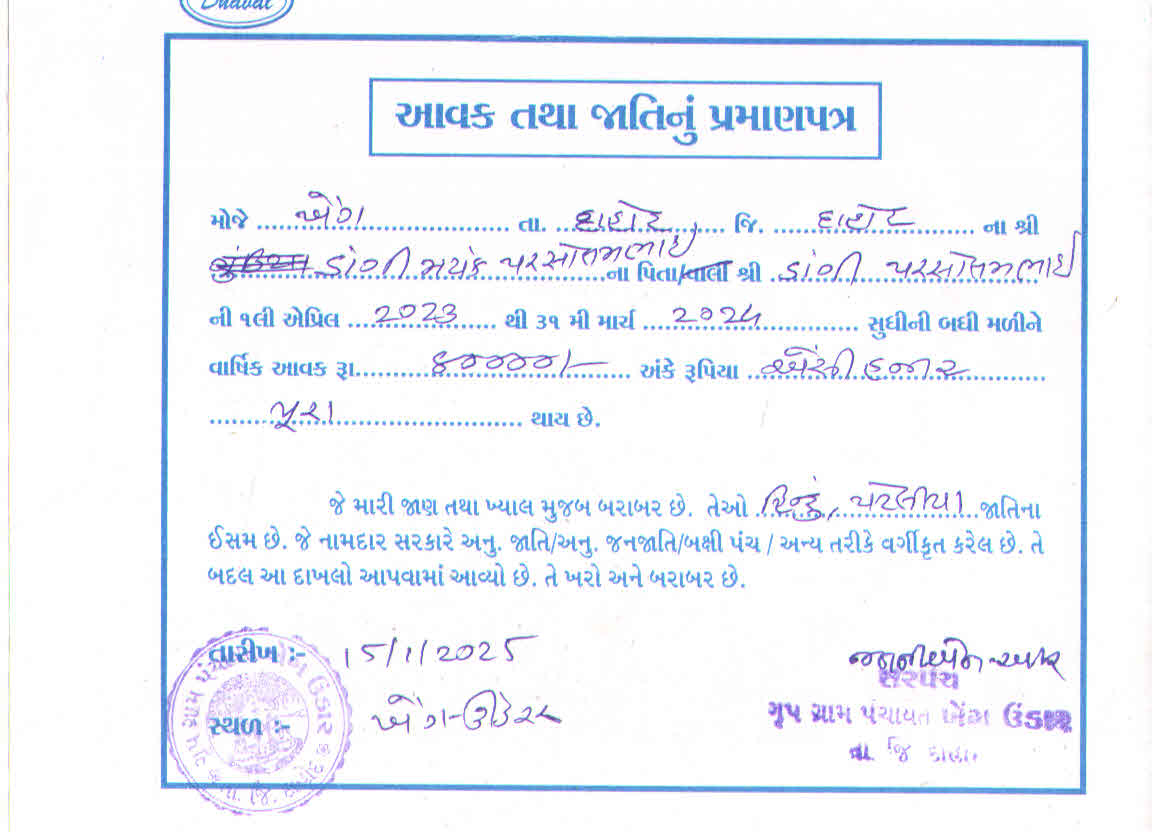 Dhaval
આવક તથા જાતિનું પ્રમાણપત્ર
મોજે ખેંગ તા. દાહોદ જિ. દાહોદ ના શ્રી
ડાંગી મયંક પરસોતમભાઇ ના પિતા/વાલી શ્રી ડાંગી પરસોતમભાઇ
ની ૧લી એપ્રિલ 2023 થી ૩૧ મી માર્ચ 2024 સુધીની બધી મળીને
વાર્ષિક આવક રૂા. ૮૦૦૦૦/- અંકે રૂપિયા એંસી હજાર
પૂરા થાય છે.
જે મારી જાણ તથા ખ્યાલ મુજબ બરાબર છે. તેઓ હિન્દુ, પટેલીયા જાતિના
ઈસમ છે. જે નામદાર સરકારે અનુ. જાતિ/અનુ. જનજાતિ/બક્ષી પંચ / અન્ય તરીકે વર્ગીકૃત કરેલ છે. તે
બદલ આ દાખલો આપવામાં આવ્યો છે. તે ખરો અને બરાબર છે.
તારીખ :- 15/1/2025
સ્થળ :- ખેંગ-ઊંડાર
સરપંચ
ગૃપ ગ્રામ પંચાયત ખેંગ ઉંડાર
તા. જિ દાહોદ